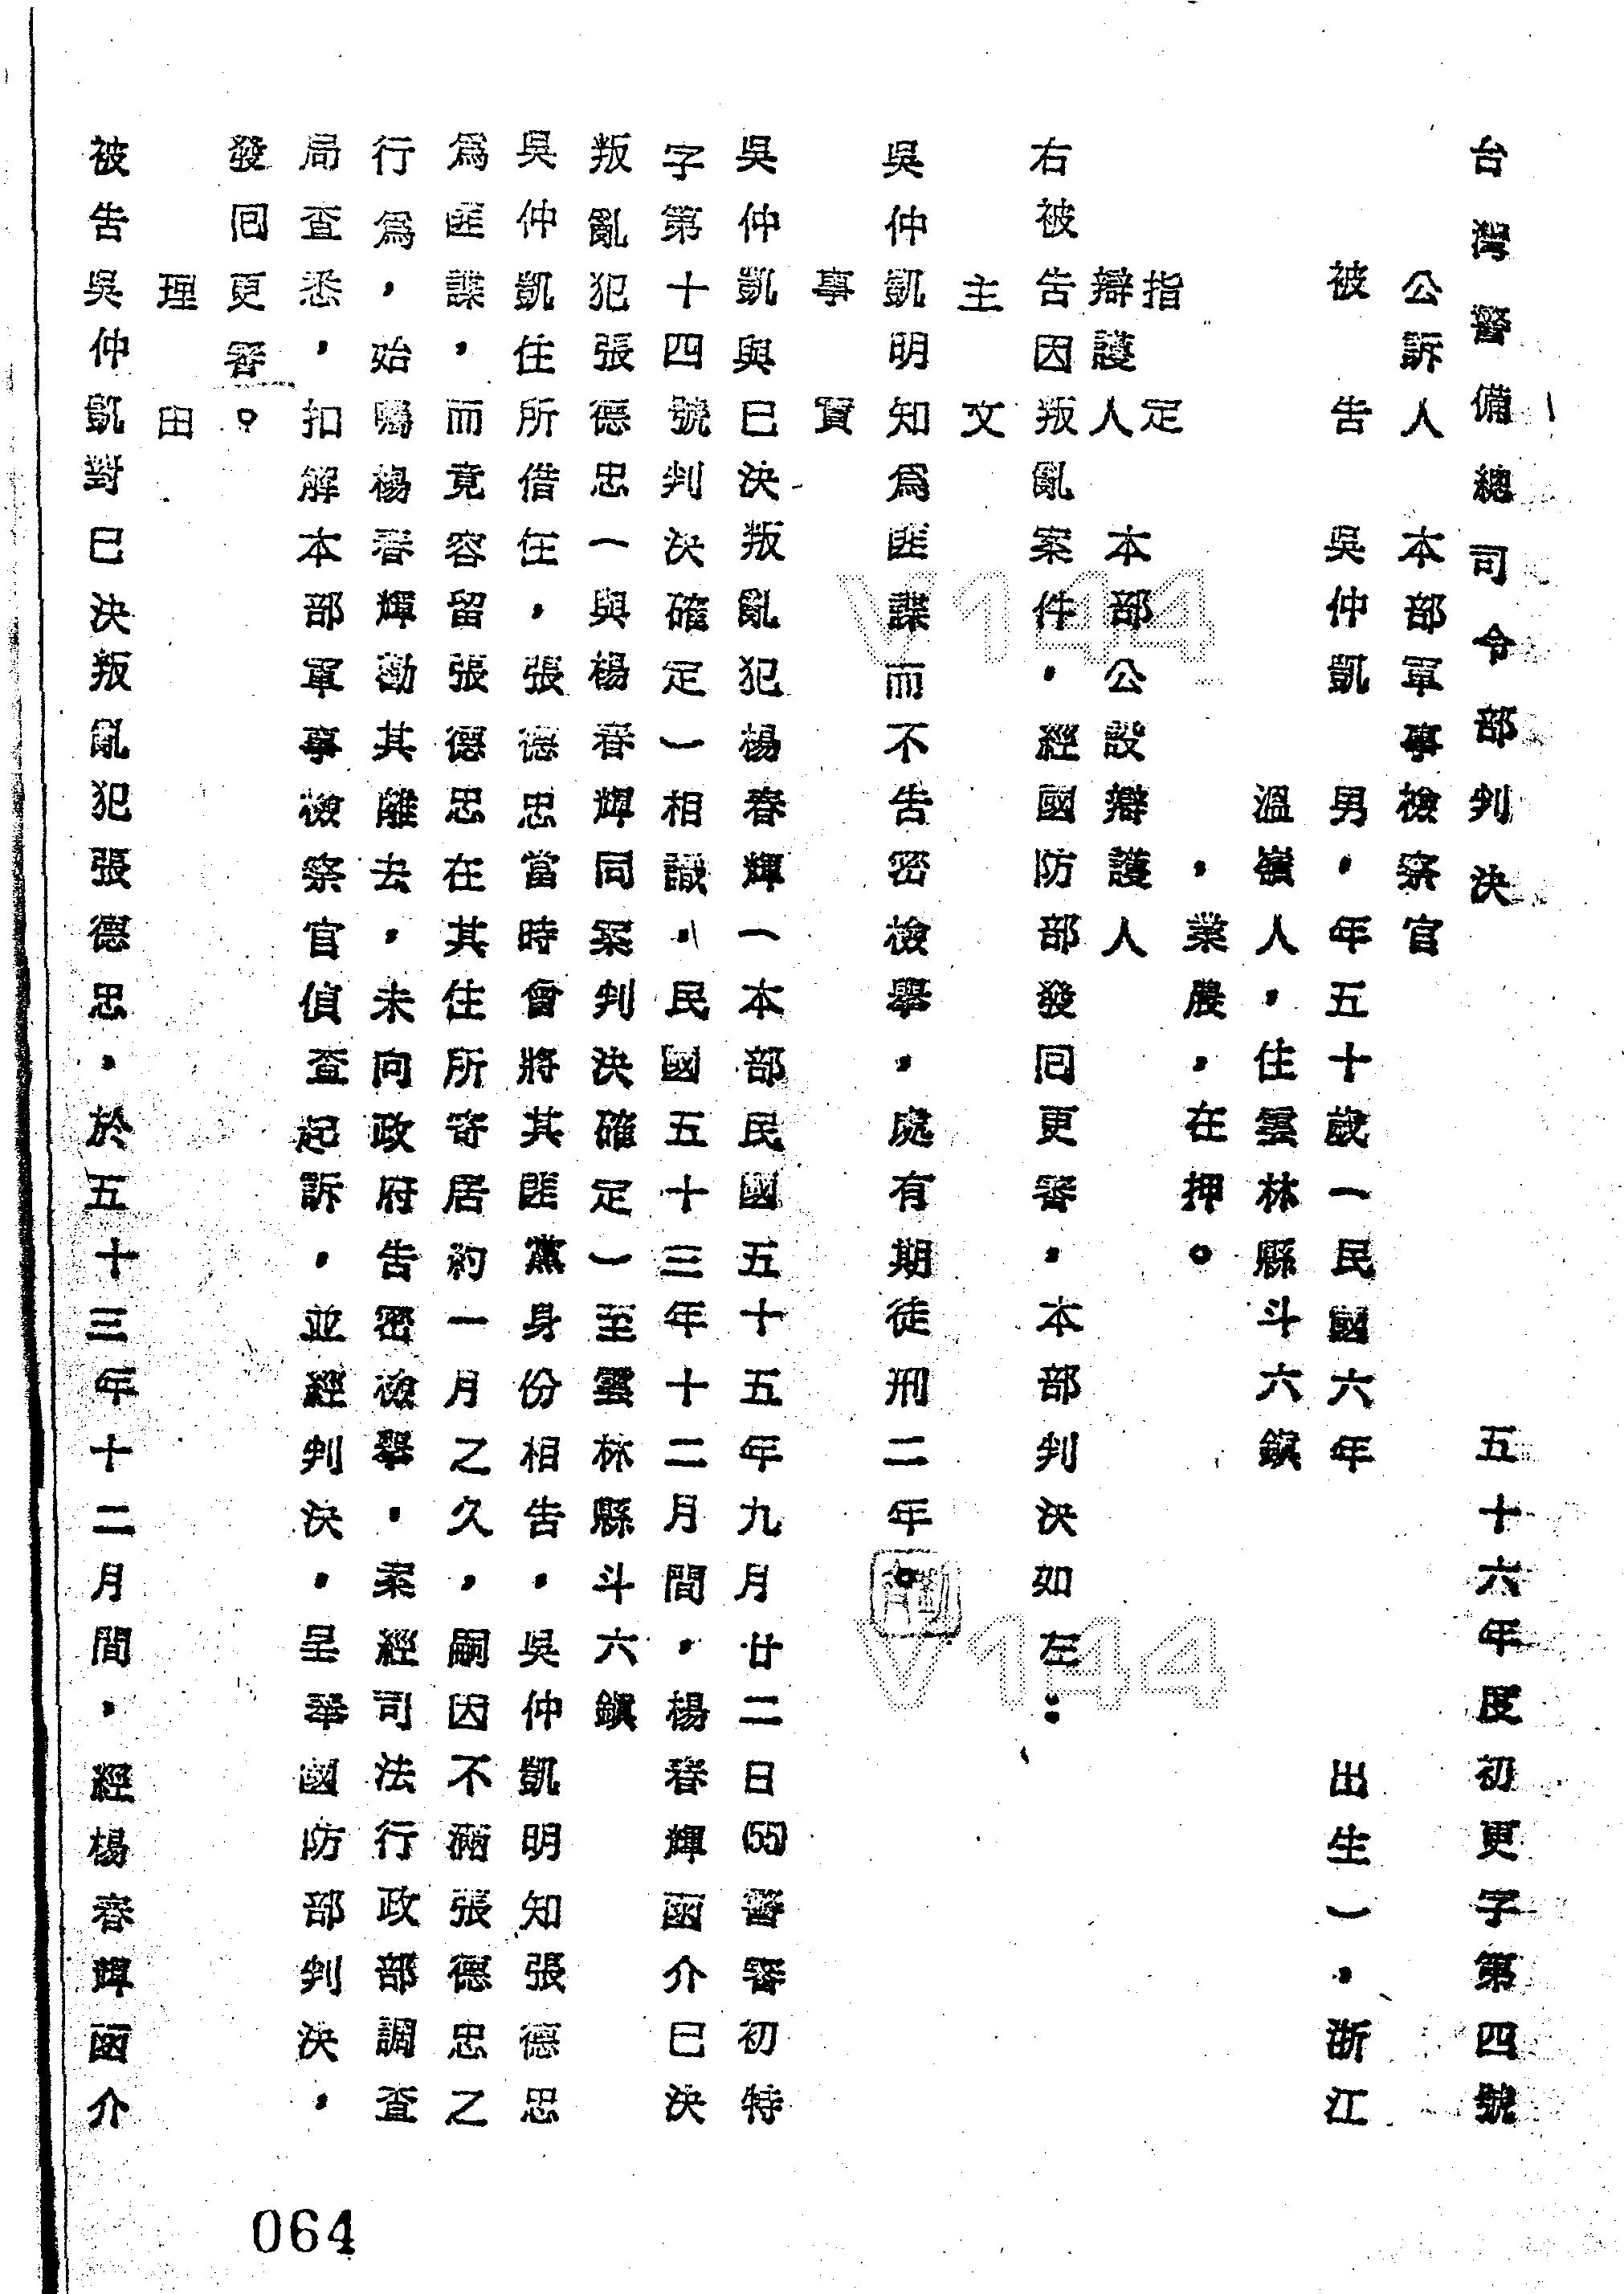 台灣警備總司令部判決　五十六年度初更字第四號
公訴人　本部軍事檢察官
被告　吳仲凱　男，年五十歲（民國六年　出生），浙江
溫嶺人，住雲林縣斗六鎮
，業農，在押。
指定
辯護人　本部公設辯護人
右被告因叛亂案件，經國防部發回更審，本部判決如左：
主文
吳仲凱明知為匪諜而不告密檢舉，處有期徒刑二年。
事實
吳仲凱與已決叛亂犯楊春輝（本部民國五十五年九月廿二日(55)警審初特
字第十四號判決確定）相識，民國五十三年十二月間，楊春輝函介已決
叛亂犯張德忠（與楊春輝同案判決確定）至雲林縣斗六鎮
吳仲凱住所借住，張德忠當時曾將其匪黨身份相告，吳仲凱明知張德忠
為匪諜，而竟容留張德忠在其住所寄居約一月之久，嗣因不滿張德忠之
行為，始囑楊春輝勸其離去，未向政府告密檢舉，案經司法行政部調查
局查悉，扣解本部軍事檢察官偵查起訴，並經判決，呈奉國防部判決，
發回更審。
理由
被告吳仲凱對已決叛亂犯張德忠，於五十三年十二月間，經楊春輝函介
064
V144
V144